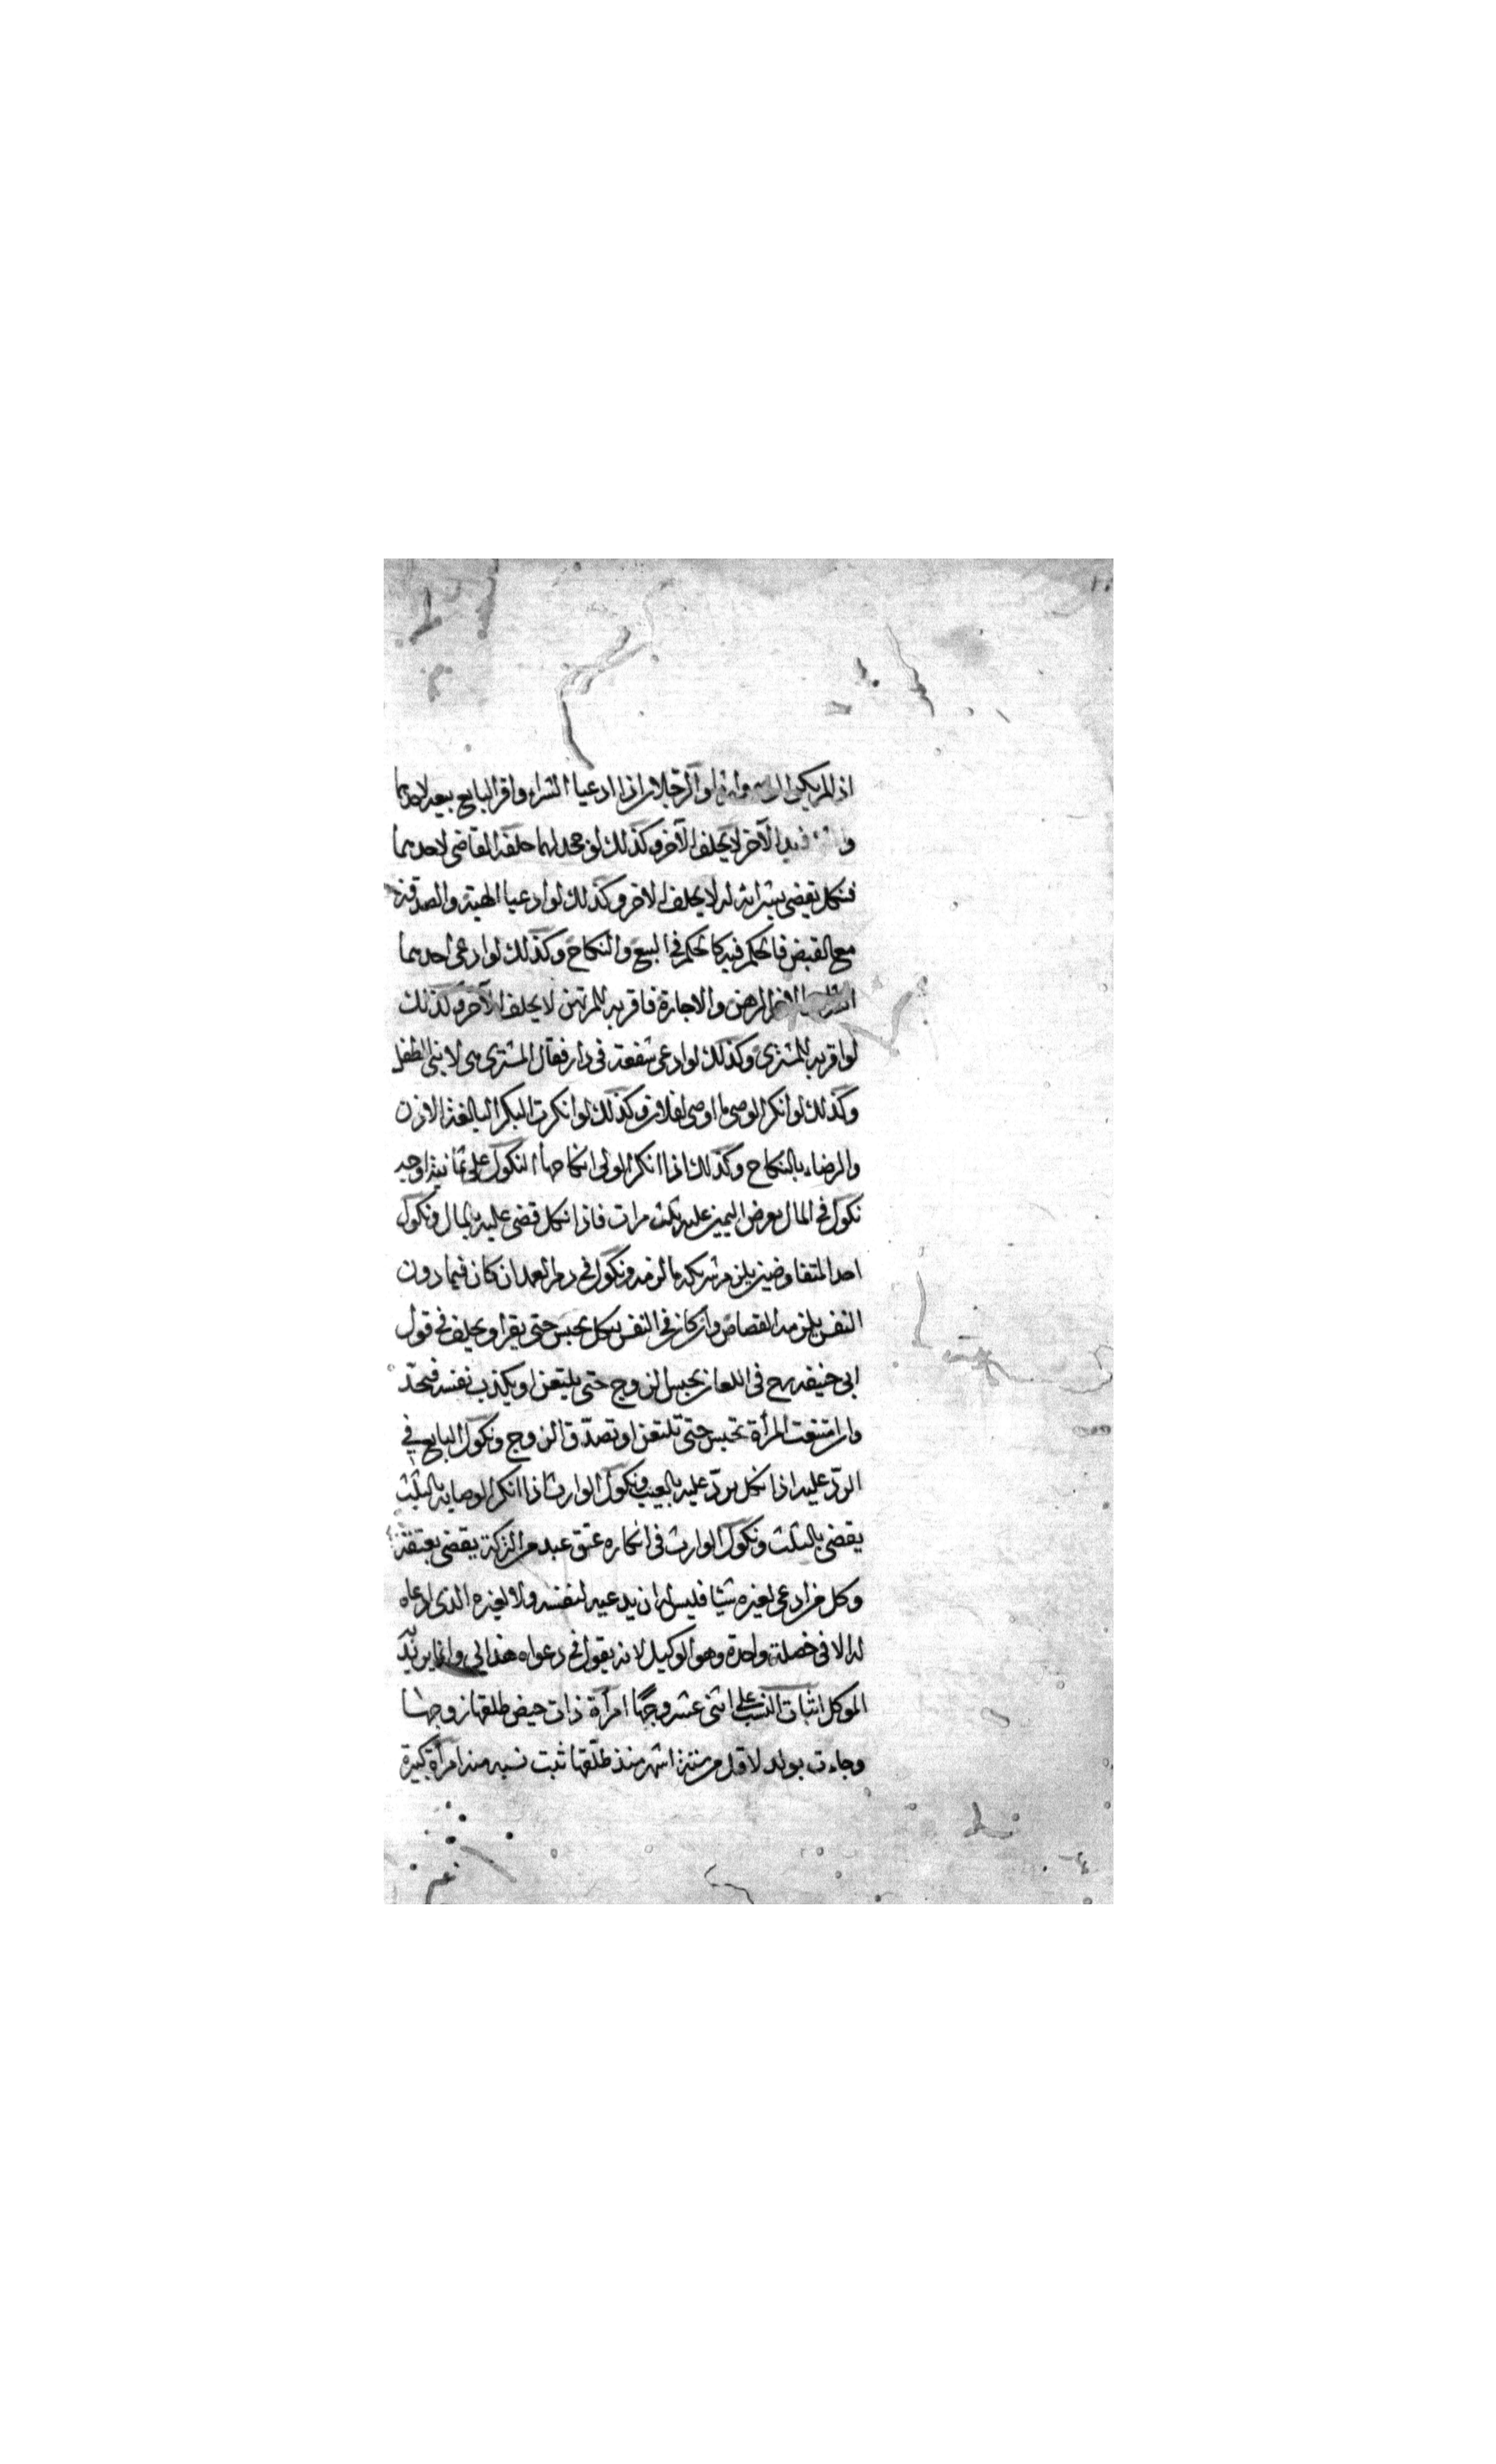 اذا لم يكن الرجلان اذا ادعيا الشراء واقر البايع ببيعه لاحدهما
الآخر لا يحلف الآخر وكذلك لو جحد لهما حلفه القاضى لاحدهما
فنكل يقضى بشرائه له لا يحلف الاخر وكذلك لو ادعيا الهبة والصدقة
مع القبض فالحكم فيه كالحكم فى البيع والنكاح وكذلك لو ادعى احدهما
الرهن والاجارة فاقر به للمرتهن لا يحلف الآخر وكذلك
لو اقر به للمشترى وكذلك لو ادعى شفعة فى دار فقال المشترى هى لابنى الطفل
وكذلك لو انكر الوصى ما اوصى لفلان وكذلك لو انكرت البكر البالغة الاذن
والرضاء بالنكاح وكذلك اذا انكر الولى انكاحها النكول على ثمانية اوجه
نكول فى المال يعرض اليمين عليه ثلث مرات فاذا نكل قضى عليه بالمال ونكول
احد المتفاوضين يلزم شريكه ما لزمه ونكول فى دم العمد ان كان فيما دون
النفس يلزمه القصاص وان كان فى النفس نكل يحبس حتى يقر او يحلف فى قول
ابى حنيفه رح فى اللعان يحبس الزوج حتى يلتعن او يكذب نفسه فيحدّ
وان امتنعت المرأة تحبس حتى تلتعن او تصدّق الزوج ونكول البايع فى
الردّ عليه اذا نكل يردّ عليه بالعيب ونكول الوارث اذا انكر الوصاية بالثلث
يقضى بالثلث ونكول الوارث فى انكاره عتق عبد من التركة يقضى بعتقه
وكل من ادعى لغيره شيئا فليس له ان يدعيه لنفسه ولا لغيره الذى ادعاه
له الا فى خصلة واحدة وهو الوكيل لانه يقول فى دعواه هذا لى وانما يريد به
الموكل اثبات النسب على اثنى عشر وجهًا امرأة ذات حيض طلقها زوجها
وجاءت بولد لاقل من ستة اشهر منذ طلّقها ثبت نسبه منه امرأة كبيرة